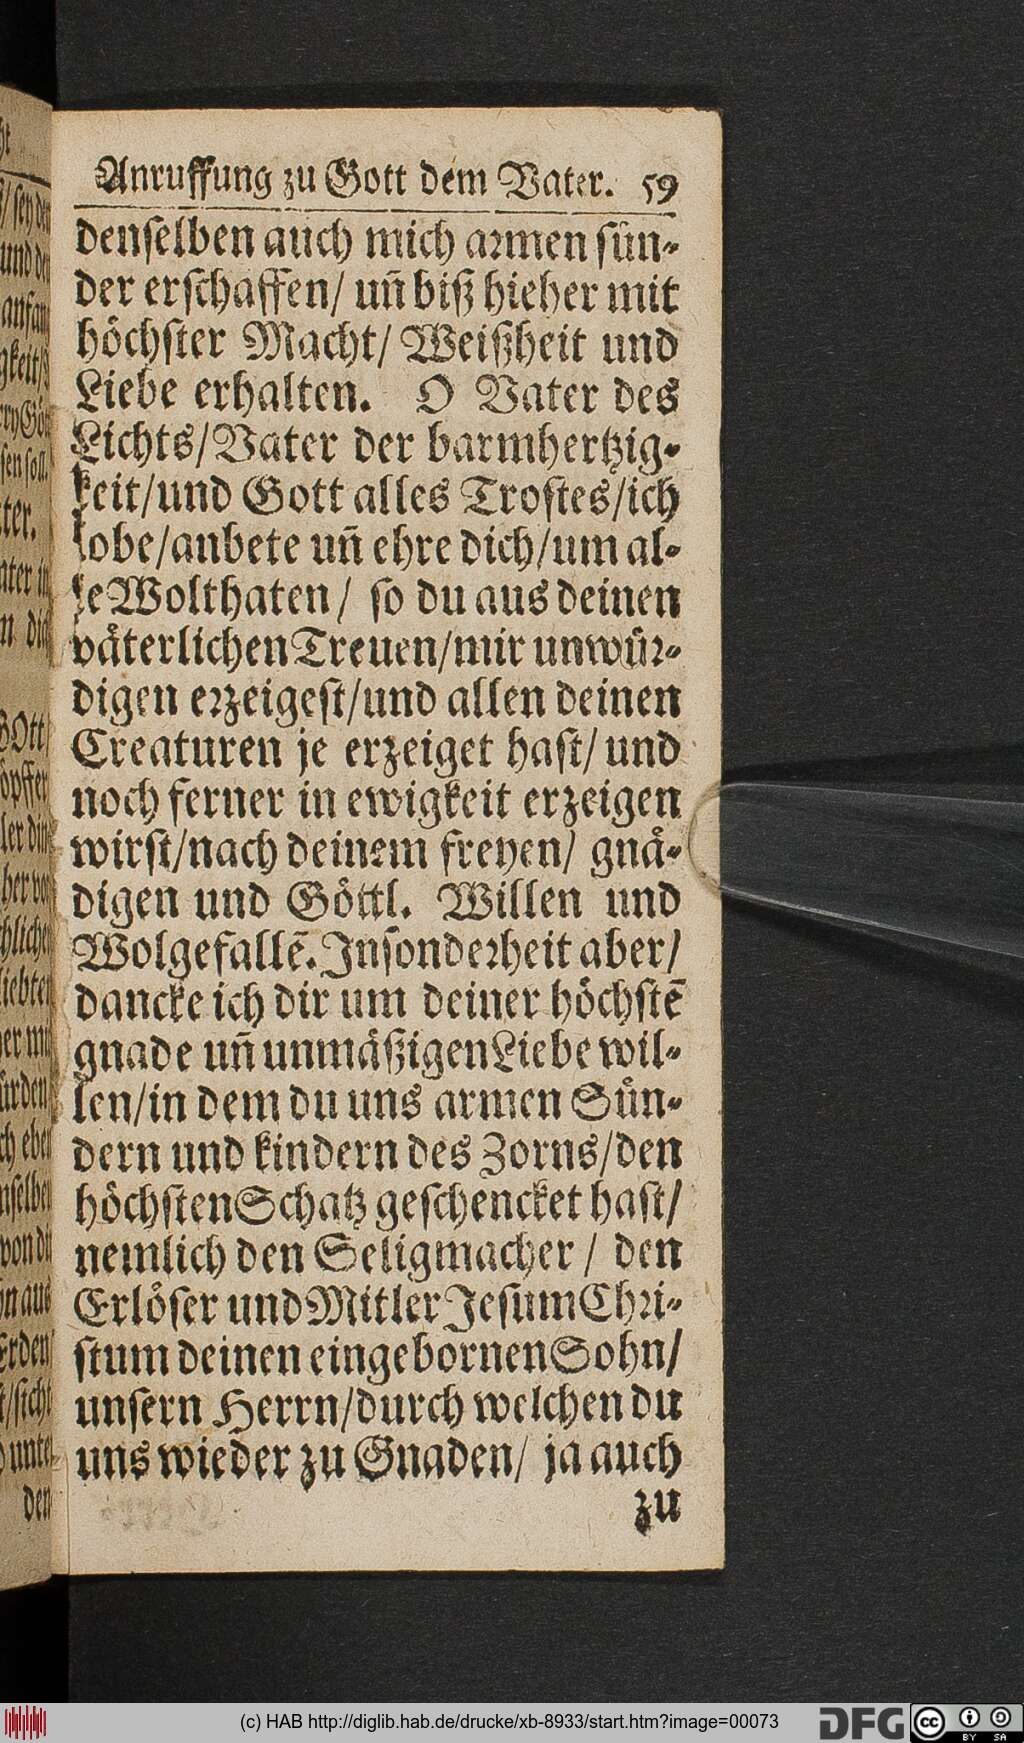 Anruffung zu Gott dem Vater. 59
denselben auch mich armen sün-
der erschaffen/ uñ biß hieher mit
höchster Macht/ Weißheit und
Liebe erhalten. O Vater des
Lichts/ Vater der barmhertzig-
keit/ und Gott alles Trostes/ ich
lobe/ anbete uñ ehre dich/ um al-
le Wolthaten/ so du aus deinen
väterlichen Treuen/ mir unwür-
digen erzeigest/ und allen deinen
Creaturen je erzeiget hast/ und
noch ferner in ewigkeit erzeigen
wirst/ nach deinem freyen/ gnä-
digen und Göttl. Willen und
Wolgefallẽ. Insonderheit aber/
dancke ich dir um deiner höchstẽ
gnade uñ unmäßigen Liebe wil-
len/ in dem du uns armen Sün-
dern und kindern des Zorns/ den
höchsten Schatz geschencket hast/
nemlich den Seligmacher/ den
Erlöser und Mitler Jesum Chri-
stum deinen eingebornen Sohn/
unsern Herrn/ durch welchen du
uns wieder zu Gnaden/ ja auch
zu
(c) HAB http://diglib.hab.de/drucke/xb-8933/start.htm?image=00073
DFG
cc
BY SA